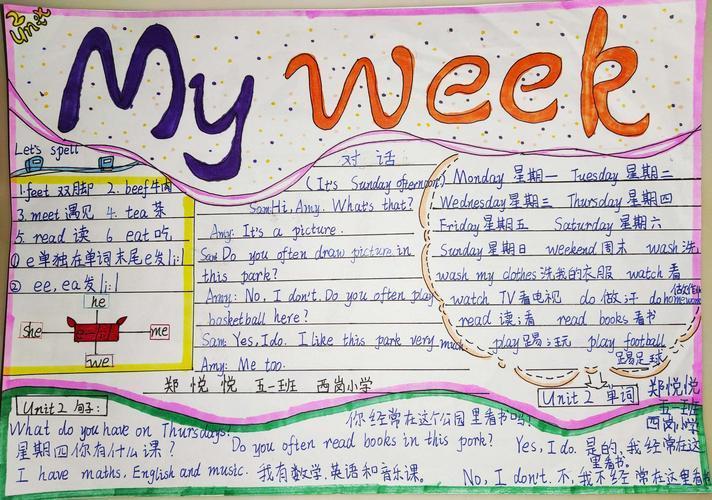 2
Unit
My Week
Let's spell
1. feet 双脚 2. beef 牛肉
3. meet 遇见 4. tea 茶
5. read 读 6 eat 吃
① e单独在单词末尾e发|i:|
② ee, ea发|i:|
he
she
me
we
对话
(It's Sunday afternoon)
Sam: Hi, Amy. What's that?
Amy: It's a picture.
Sam: Do you often draw picture in
this park?
Amy: No, I don't. Do you often play
basketball here?
Sam: Yes, I do. I like this park very much.
Amy: Me too.
郑悦悦 五一班 西岗小学
Monday 星期一 Tuesday 星期二
Wednesday 星期三 Thursday 星期四
Friday 星期五 Saturday 星期六
Sunday 星期日 weekend 周末 wash 洗
wash my clothes 洗我的衣服 watch 看
watch TV 看电视 do 做;干 do homework
read 读;看 read books 看书
play 踢;玩 play football
踢足球
Unit 2 单词
郑悦悦
五一班
西岗小学
Unit 2 句子:
What do you have on Thursdays?
星期四你有什么课?
I have maths, English and music. 我有数学,英语和音乐课。
你经常在这个公园里看书吗?
Do you often read books in this park? Yes, I do. 是的,我经常在这
里看书。
No, I don't. 不,我不经常在这里看书